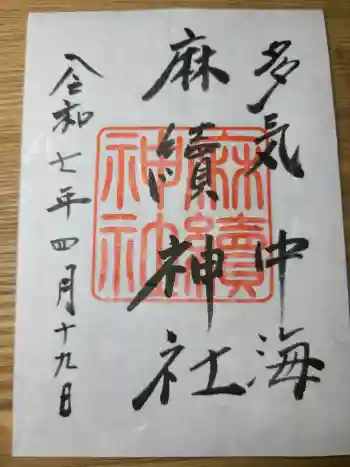 多気中海
麻續神社
令和七年四月十九日
麻續
神社